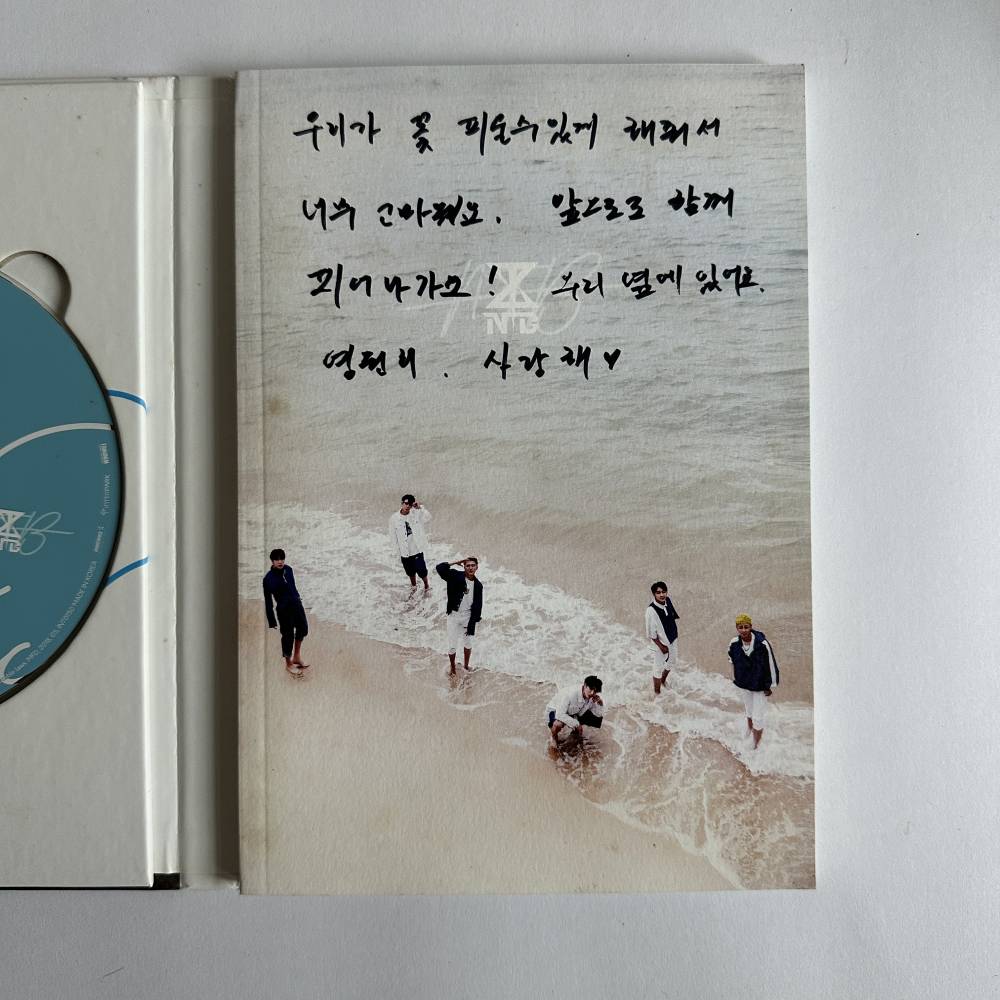 우리가 꽃 피울수있게 해줘서
너무 고마워요. 앞으로도 함께
피어나가요! 우리 옆에 있어요.
영원히. 사랑해♥
MADE IN KOREA